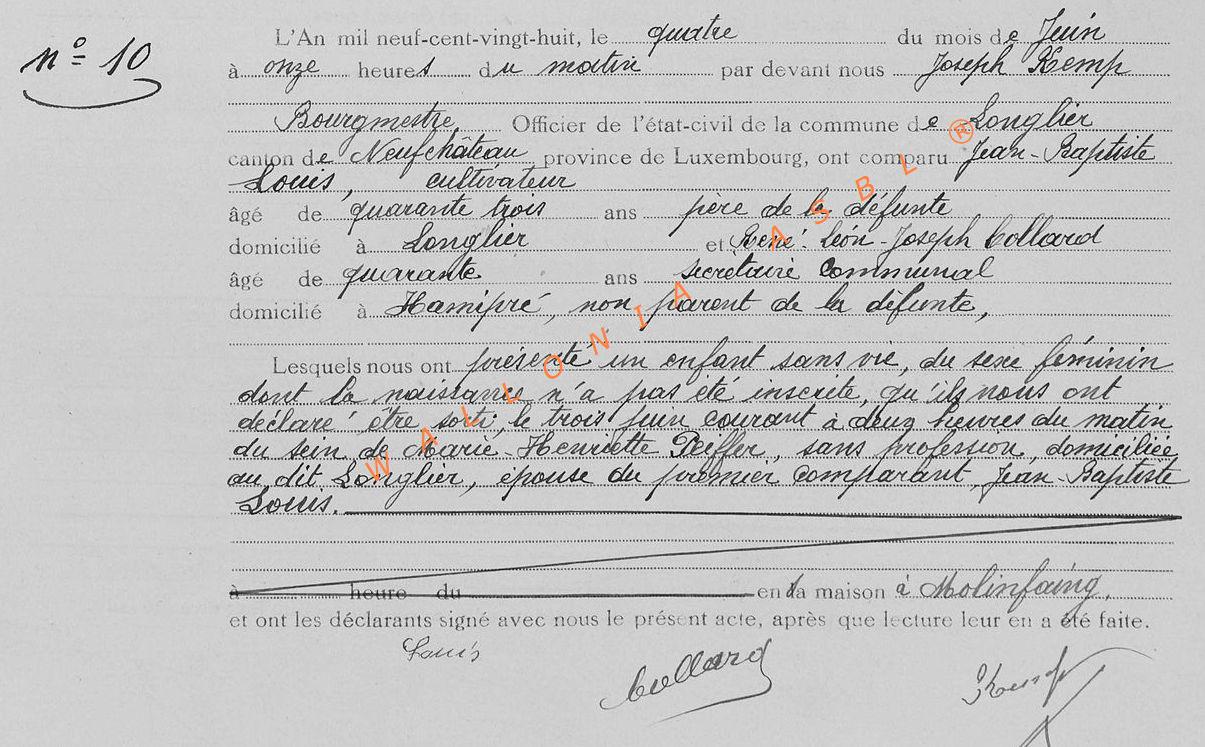 n° 10
L'An mil neuf-cent-vingt-huit, le quatre du mois de Juin
à onze heures du matin par devant nous Joseph Kemp
Bourgmestre, Officier de l'état-civil de la commune de Longlier
canton de Neufchâteau, province de Luxembourg, ont comparu Jean-Baptiste
Louis, cultivateur
âgé de quarante trois ans père de la défunte
domicilié à Longlier et René-Léon-Joseph Collard
âgé de quarante ans secrétaire communal
domicilié à Hamipré, non parent de la défunte,
Lesquels nous ont présenté un enfant sans vie, du sexe féminin
dont la naissance n'a pas été inscrite, qu'ils nous ont
déclaré être sorti, le trois juin courant à deux heures du matin
du sein de Marie-Henriette Peiffer, sans profession, domiciliée
au dit Longlier, épouse du premier comparant, Jean-Baptiste
Louis.
à heure du en la maison à Molinfaing.
et ont les déclarants signé avec nous le présent acte, après que lecture leur en a été faite.
Louis Collard Kemp
WALLONIA ASBL ®